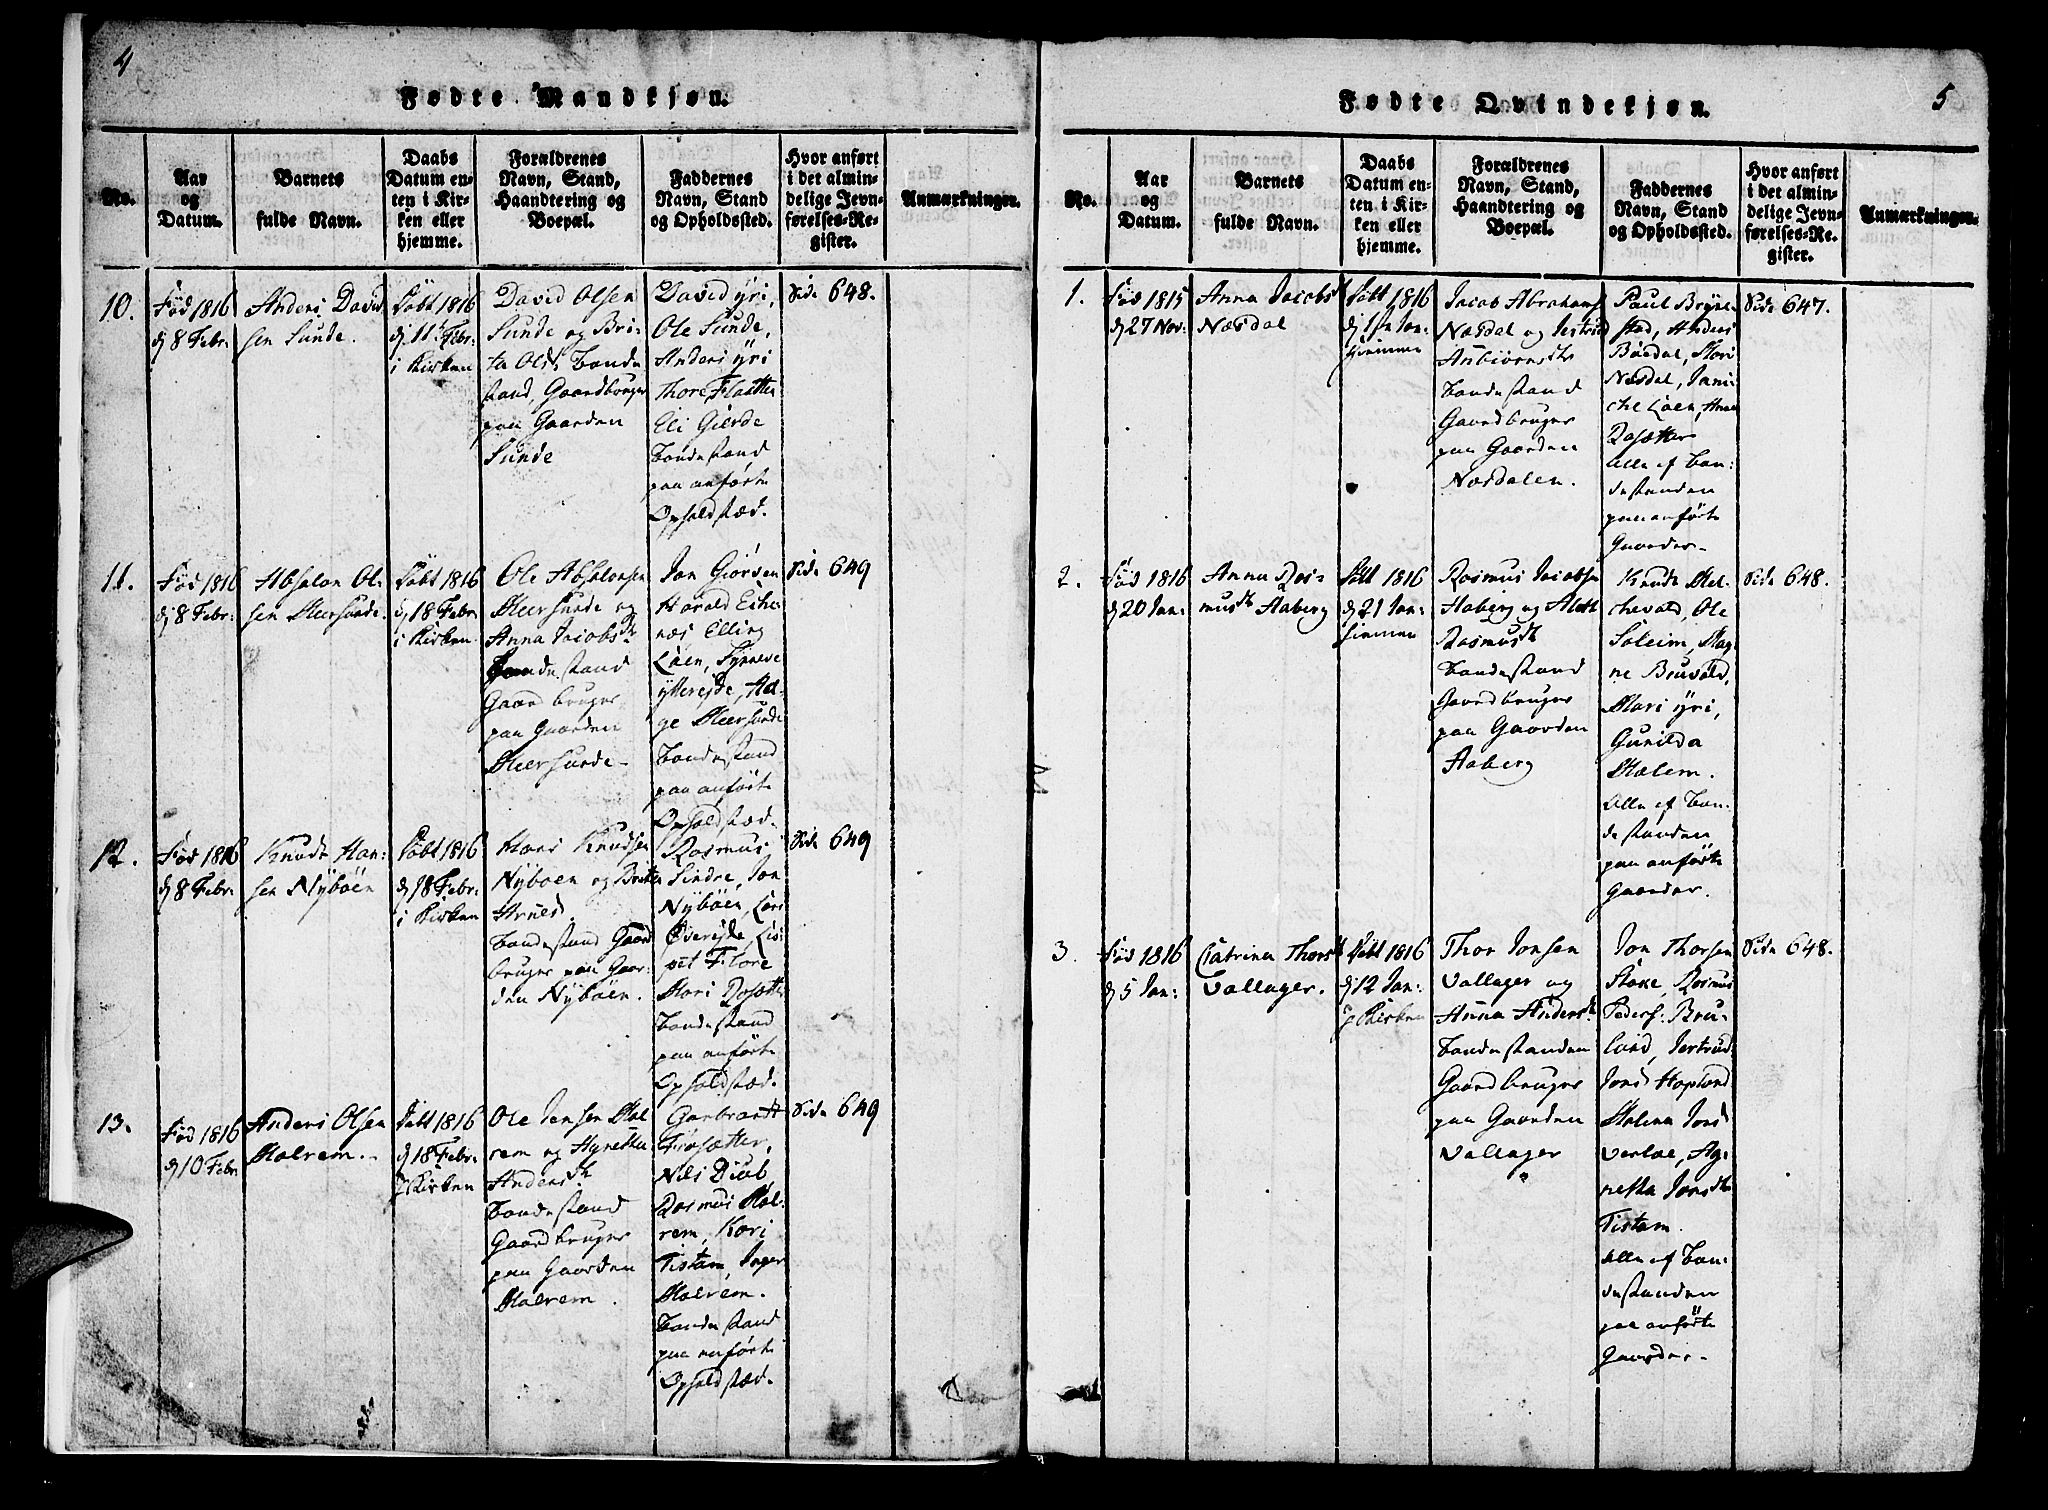 4
Fødte Mandkjøn.
No.
Aar
og
Datum.
Barnets
fulde Navn.
Daabs
Datum en-
ten i Kir-
ken eller
hjemme.
Forældrenes
Navn, Stand,
Haandtering og
Boepæl.
Faddernes
Navn, Stand
og Opholdssted.
Hvor anført
i det almin-
delige Jevn-
førelses-Re-
gister.
Anmærkninger.
10.
Fød 1816
d 8 Febr:
Anders David
sen Sunde.
Døbt 1816
d 11 Febr:
i Kirken
David Olsen
Sunde og Bri-
ta Olsdt Bonde
stand, Gaardbruger
paa Gaarden
Sunde
David ÿri,
Ole Sunde,
Anders ÿri
Thore Flaatten
Eli Gierde
Bondestand
paa anførte
Opholdstæd.
Side 648.
11.
Fød 1816
d 8 Febr:
Absalon Ol-
sen Meersunde.
Døbt 1816
d 18 Febr:
i Kirken.
Ole Absalonsen
Meersunde og
Anna Jacobsdt
Bondestand
Gaardbruger
paa Gaarden
Meersunde
Jon Giørven
Harald Eike-
næs Elling
Løen, Synneve
ÿtterejde, Hel-
ge Meersunde
Bondestand
paa anførte
Opholdstæd.
Side 649
12.
Fød 1816
d 8 Febr:
Knude Han-
sen Nÿbøen
Døbt 1816
d 18 Febr:
i Kirken
Hans Knudsen
Nÿbøen og Brithe
Arnesd.
Bondestand Gaard
bruger paa Gaar-
den Nÿbøen.
Rasmus
Sindre, Jon
Nÿbøen, Lars
Øverejde, Lis-
pet Flore
Mari Rosætter
Bondestand
paa anførte
Opholdstæd.
Side 649
13.
Fød 1816
d 10 Febr
Anders Olsen
Molrem.
Døbt 1816
d 18 Febr:
i Kirken
Ole Jensen Mol
rem og Agnethe
Andersdt
Bondestand
Gaardbruger
paa Gaarden
Molrem.
Garbrandt
Fosætter,
Nils Diub
Rasmus Mol-
rem, Kari
Tistam, Inger
Molrem.
Bondestand
paa anførte
Opholdstæd.
Side 649
5
Fødte Qvindekjøn.
No.
Aar
og
Datum.
Barnets
fulde Navn.
Daabs
Datum en-
ten i Kir-
ken eller
hjemme.
Forældrenes
Navn, Stand,
Haandtering og
Boepæl.
Faddernes
Navn, Stand
og Opholdssted.
Hvor anført
i det almin-
delige Jevn-
førelses-Re-
gister.
Anmærkninger.
1.
Fød 1815
d 27 Nov:
Anna Jacobsdt
Næsdal
Døbt 1816
d 1ste Jan:
hiemme
Jacob Abrahams
Næsdal og Jertrud
Anbiørnsdt
Bondestand
Gaardbruger
paa Gaarden
Næsdalen.
Paul Bryne-
stad, Anders
Bødal, Mari
Næsdal, Jani-
che Løen, Anna
Rosætter
alle af Bon-
destanden
paa anførte
Gaarder.
Side 647.
2.
Fød 1816
d 20 Jan:
Anna Ras-
musdt Aaberg
Døbt 1816
d 21 Jan:
hiemme
Rasmus Jacobsen
Aaberg og Alett
Rasmusdt
Bondestand
Gaardbruger
paa Gaarden
Aaberg
Knude Mel-
chevold, Ole
Soleim, Mag-
ne Bruvold,
Mari ÿri,
Gunilda
Mælem.
alle af Bon-
destanden
paa anførte
Gaarder.
Side 648.
3.
Fød 1816
d 5 Jan:
Catrina Thorsdt
Vallager.
Døbt 1816
d 12 Jan:
i Kirken
Thor Jonsen
Vallager og
Anna Andersdt
Bondestanden
Gaardbruger
paa Gaarden
Vallager
Jon Thorsen
Støve, Rasmus
Peders: Bru-
land, Jertrud
Jonsd Hopland
Malena Jonsd
Verløe, Ag-
netha Jonsdt
Tistam.
alle af Bon-
destanden
paa anførte
Gaarder.
Side 648.